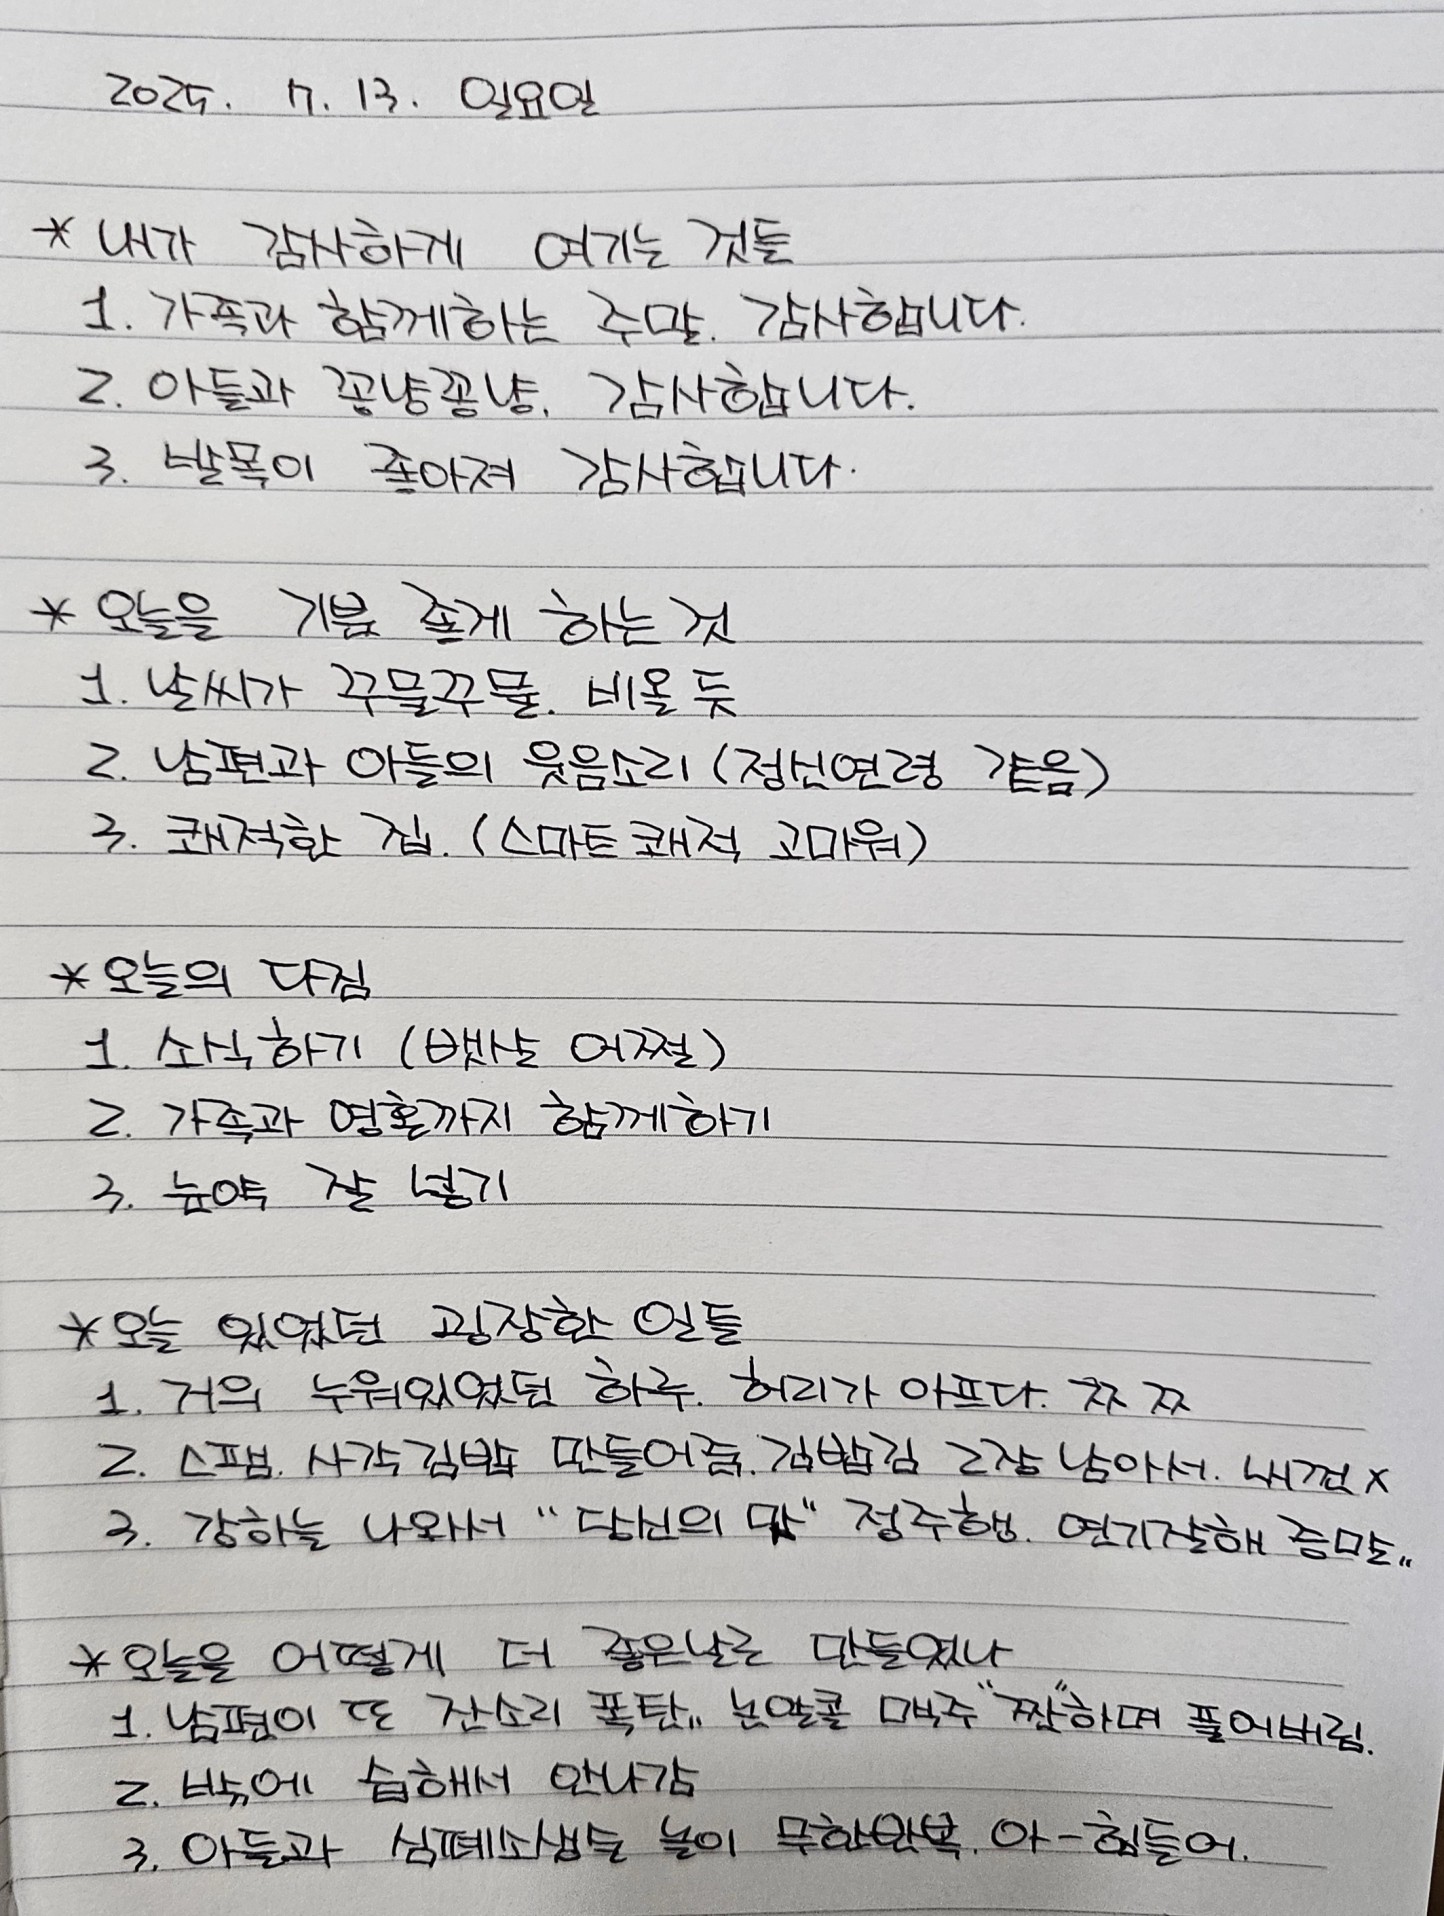 2025. 7. 13. 일요일
* 내가 감사하게 여기는 것들
1. 가족과 함께하는 주말. 감사합니다.
2. 아들과 꽁냥꽁냥. 감사합니다.
3. 발목이 좋아져 감사합니다.
* 오늘을 기분 좋게 하는 것
1. 날씨가 꾸물꾸물. 비올 듯
2. 남편과 아들의 웃음소리 (정신연령 같음)
3. 쾌적한 집. (스마트쾌적 고마워)
* 오늘의 다짐
1. 소식하기 (뱃살 어쩔)
2. 가족과 영혼까지 함께하기
3. 눈약 잘 넣기
* 오늘 있었던 굉장한 일들
1. 거의 누워있었던 하루. 허리가 아프다. ㅉㅉ
2. 스팸. 사각김밥 만들어줌. 김밥김 2장 남아서. 내껀 x
3. 강하늘 나와서 "당신의 맛" 정주행. 연기잘해 증말..
* 오늘을 어떻게 더 좋은날로 만들었나
1. 남편이 또 잔소리 폭탄.. 논알콜 맥주 "짠"하며 풀어버림.
2. 밖에 습해서 안나감
3. 아들과 심폐소생술 놀이 무한반복. 아-힘들어.